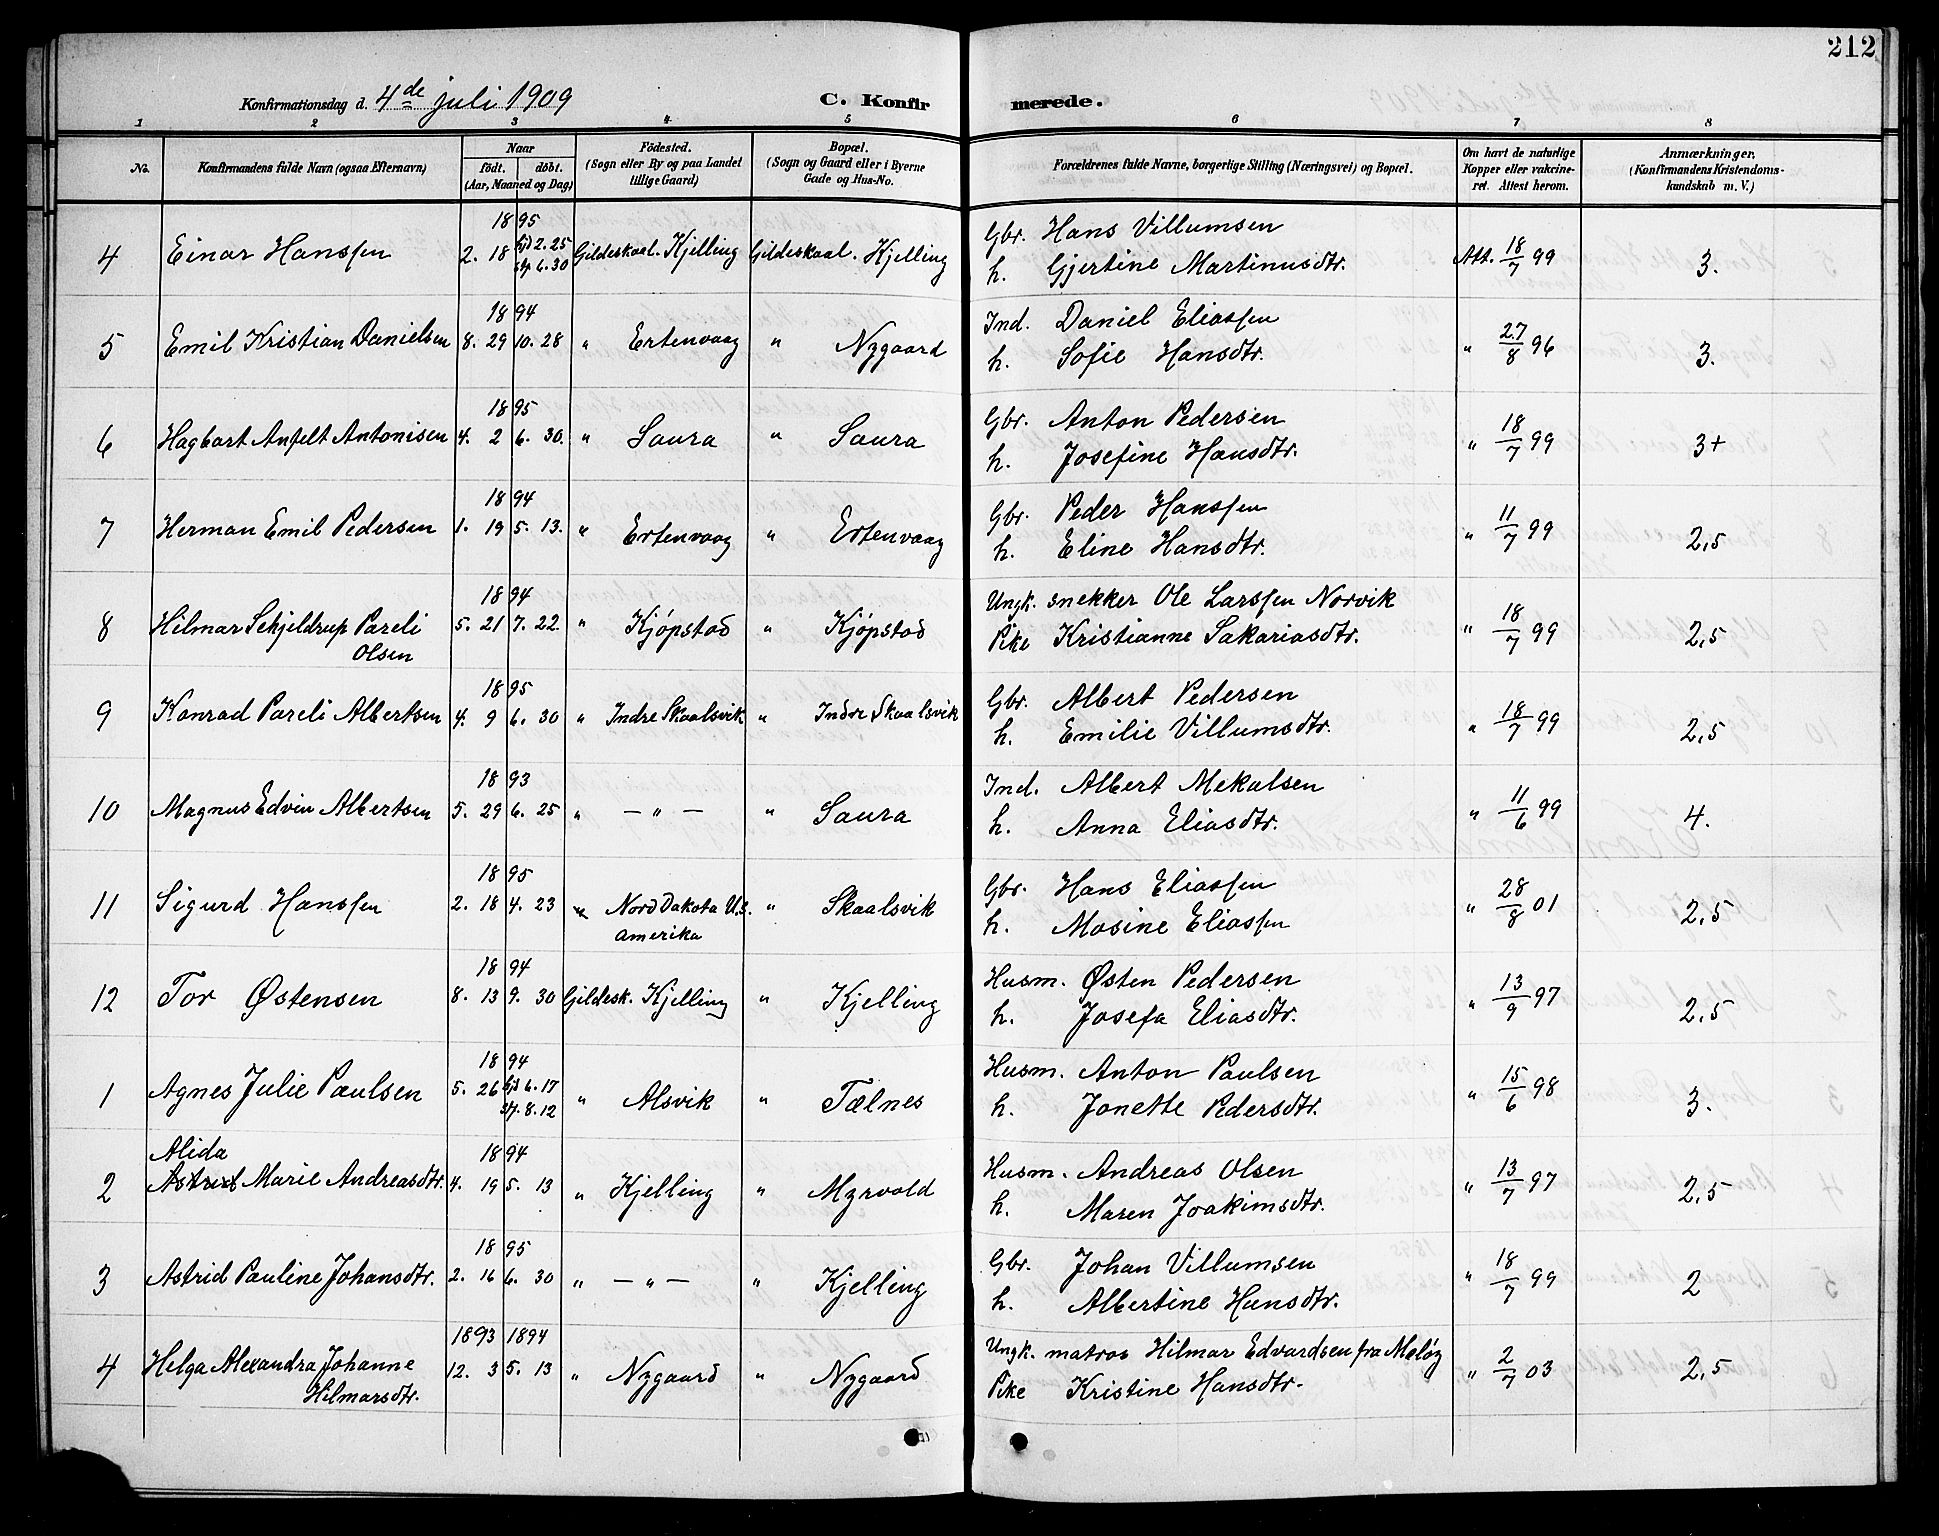 212
Konfirmationsdag d. 4de juli 1909 C. Konfirmerede.
1 2 3 4 5 6 7 8
No. Konfirmandens fulde Navn (ogsaa Efternavn) Naar födt. döbt. (Aar, Maaned og Dag) Födested. (Sogn eller By og paa Landet tillige Gaard) Bopæl. (Sogn og Gaard eller i Byerne Gade og Hus-No. Forældrenes fulde Navne, borgerlige Stilling (Næringsvei) og Bopæl. Om havt de naturlige Kopper eller vakcineret. Attest herom. Anmærkninger, (Konfirmandens Kristendomskundskab m. V.)
18 95 Gbr. Hans Villumsen
4 Einar Hanssen 2. 18 hjd 2. 25 st 6. 30 Gildeskaal. Kjelling Gildeskaal. Kjelling h. Gjertine Martinusdtr. Att. 18/7 99 3.
18 94 Ind. Daniel Eliassen
5 Emil Kristian Danielsen 8. 29 10. 28 " Ertenvaag " Nygaard h. Sofie Hansdtr. " 27/8 96 3.
18 95 Gbr. Anton Pedersen
6 Hagbart Anfelt Antonisen 4. 2 6. 30. " Saura " Saura h. Josefine Hansdtr. " 18/7 99 3+
18 94 Gbr. Peder Hanssen
7 Herman Emil Pedersen 1. 19 5. 13. " Ertenvaag " Ertenvaag h. Eline Hansdtr. " 11/7 99 2,5
18 94 Ungk. snekker Ole Larssen Norvik
8 Hilmar Schjeldrup Pareli Olsen 5. 21 7. 22 " Kjöpstad " Kjöpstad Pike Kristianne Sakariasdtr. " 18/7 99 2,5
18 95 Gbr. Albert Pedersen
9 Konrad Pareli Albertsen 4. 9 6. 30 " Indre Skaalsvik " Indre Skaalsvik h. Emilie Villumsdtr. " 18/7 99 2,5
18 93 Ind. Albert Mekalsen
10 Magnus Edvin Albertsen 5. 29 6. 25 " — " — " Saura h. Anna Eliasdtr. " 11/6 99 4.
18 95 Gbr. Hans Eliassen
11 Sigurd Hanssen 2. 18 4. 23 " Nord Dakota U.S. Amerika " Skaalsvik h. Mosine Eliassen " 28/8 01 2,5
18 94 Husm. Østen Pedersen
12 Tor Østensen 8. 13 9. 30 Gildesk. Kjelling " Kjelling h. Josefa Eliasdtr. " 13/9 97 2,5
18 94 Husm. Anton Paulsen
1 Agnes Julie Paulsen 5. 26 hjd 6. 17 st. 8. 12 " Alsvik " Tælnes h. Jonette Pedersdtr. " 15/6 98 3.
Alida 18 94 Husm. Andreas Olsen
2 Astrid Marie Andreasdtr. 4. 19 5. 13 " Kjelling " Myrvold h. Maren Joakimsdtr. " 13/7 97 2,5
18 95 Gbr. Johan Villumsen
3 Astrid Pauline Johansdtr. 2. 16 6. 30 " — " — " Kjelling h. Albertine Hansdtr. " 18/7 99 2
1893 1894 Ungk. matros Hilmar Edvardsen fra Meløy
4 Helga Alexandra Johanne Hilmarsdtr. 12. 3 5. 13 " Nygaard " Nygaard Pike Kristine Hansdtr. " 2/7 03 2,5